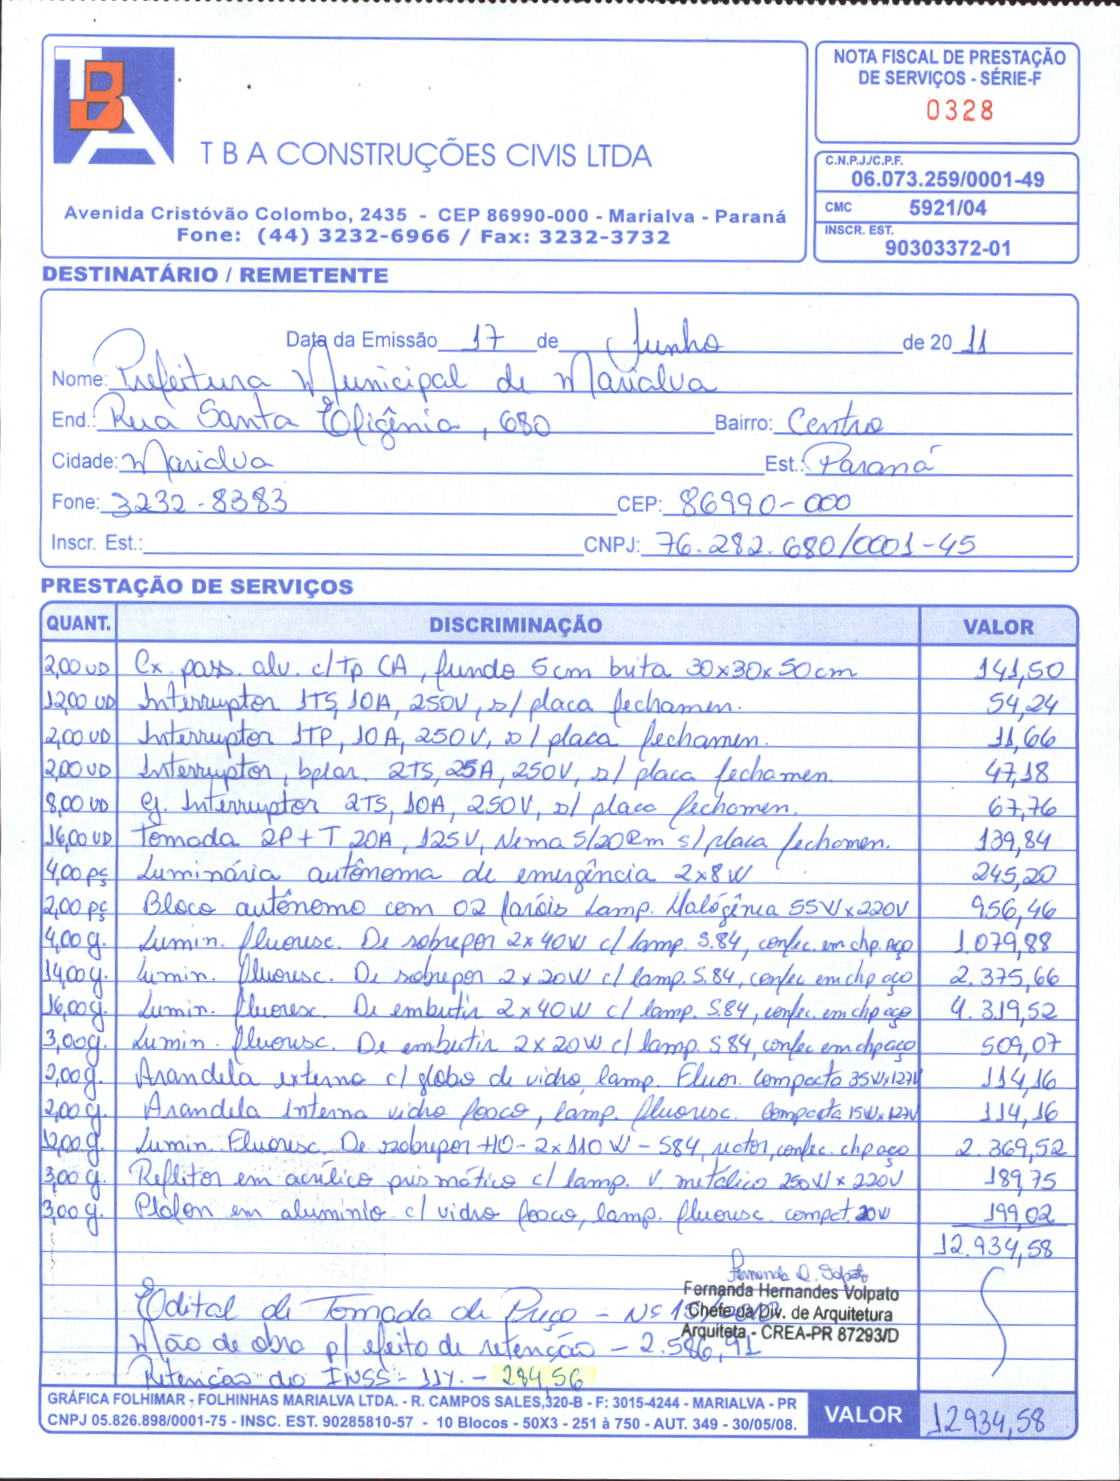 TBA
T B A CONSTRUÇÕES CIVIS LTDA
Avenida Cristóvão Colombo, 2435 - CEP 86990-000 - Marialva - Paraná
Fone: (44) 3232-6966 / Fax: 3232-3732
NOTA FISCAL DE PRESTAÇÃO
DE SERVIÇOS - SÉRIE-F
0328
C.N.P.J./C.P.F.
06.073.259/0001-49
CMC 5921/04
INSCR. EST.
90303372-01
DESTINATÁRIO / REMETENTE
Data da Emissão 17 de Junho de 2011
Nome: Prefeitura Municipal de Marialva
End.: Rua Santa Efigênia, 680 Bairro: Centro
Cidade: Marialva Est.: Paraná
Fone: 3232-8383 CEP: 86990-000
Inscr. Est.: CNPJ: 76.282.680/0001-45
PRESTAÇÃO DE SERVIÇOS
QUANT. DISCRIMINAÇÃO VALOR
2,00 UD Cx. pass. alv. c/ Tp CA, fundo 5cm brita 30x30x50cm 141,50
12,00 UD Interruptor 1TS, 10A, 250V, s/ placa fechamen. 54,24
2,00 UD Interruptor 1TP, 10A, 250V, s/ placa fechamen. 11,66
2,00 UD Interruptor, bplar. 2TS, 25A, 250V, s/ placa fechamen. 47,18
8,00 UD Cj. Interruptor 2TS, 10A, 250V, s/ placa fechamen. 67,76
16,00 UD Tomada 2P+T 20A, 125V, Nema 5/20R m s/ placa fechamen. 139,84
4,00 pç Luminária autônoma de emergência 2x8W 245,20
2,00 pç Bloco autônomo com 02 faróis Lamp. Halógênia 55Wx220V 956,46
4,00 cj. Lumin. fluoresc. De sobrepor 2x40W c/ lamp. S.84, confec. em chp. Aço 1.079,88
14,00 cj. Lumin. fluoresc. De sobrepor 2x20W c/ lamp. S.84, confec em chp aço 2.375,66
16,00 cj. Lumin. fluoresc. De embutir 2x40W c/ lamp. S.84, confec. em chp aço 4.319,52
3,00 cj. Lumin. fluoresc. De embutir 2x20W c/ lamp. S 84, confec em chp aço 509,07
2,00 cj. Arandela externa c/ globo de vidro, lamp. Fluor. Compacta 35Wx127V 114,16
2,00 cj. Arandela Interna vidro fosco, lamp. fluoresc. Compacta 15Wx127V 114,16
12,00 cj. Lumin. Fluoresc. De sobrepor HO-2x110W-S84, reator, confec. chp aço 2.369,52
3,00 cj. Refletor em acrílico prismático c/ lamp. V. metálico 250W x 220V 189,75
3,00 cj. Plafon em aluminio c/ vidro fosco, lamp. fluoresc. compct. 20W 199,02
12.934,58
Fernanda Hernandes Volpato
Chefe da Div. de Arquitetura
Arquiteta - CREA-PR 87293/D
Edital de Tomada de Preço - Nº
Mão de obra p/ efeito de retenção - 2.586,91
Retenção do INSS - 11%. - 284,56
GRÁFICA FOLHIMAR - FOLHINHAS MARIALVA LTDA. - R. CAMPOS SALES,320-B - F: 3015-4244 - MARIALVA - PR
CNPJ 05.826.898/0001-75 - INSC. EST. 90285810-57 - 10 Blocos - 50X3 - 251 à 750 - AUT. 349 - 30/05/08.
VALOR 12934,58